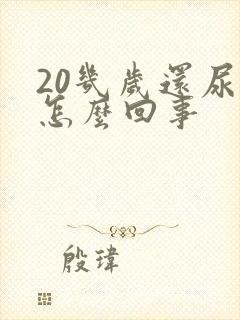 20幾歲還尿
怎麼回事
殷瑋